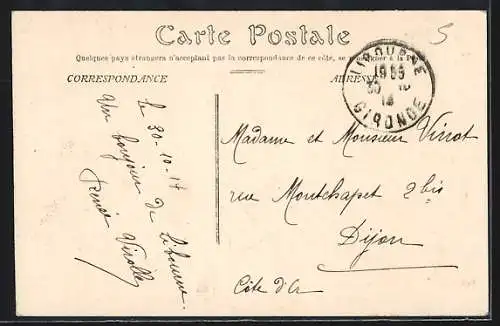 Carte Postale
5
Quelques pays étrangers n'acceptant pas la correspondance de ce côté, se
CORRESPONDANCE
ADRESSE
LIBOURNE
30
GIRONDE
le 30-10-14
Un bonjour de Libourne
Madame et Monsieur
rue Montchapet 2 bis
Dijon
Côte d'Or